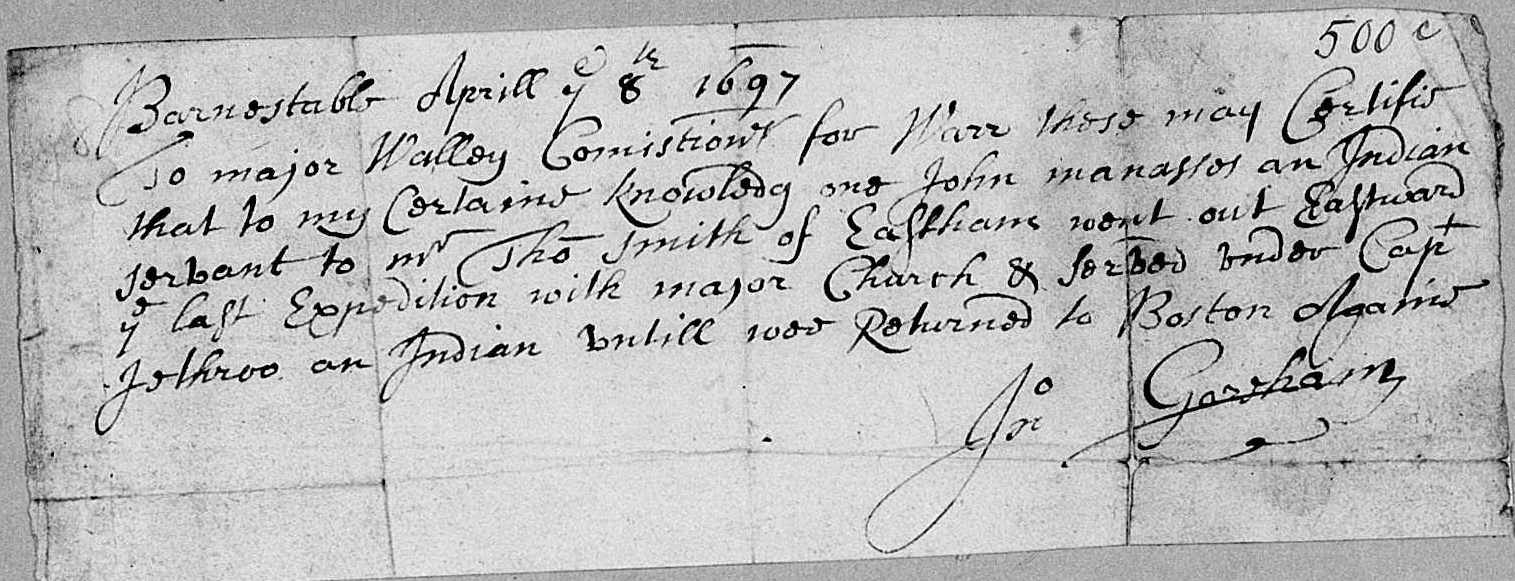 500 c
Barnestable Aprill ye 8th 1697
To major Walley Comistionr for Warr these may Certifie
that to my Certaine knowledg one John manasses an Indian
servant to mr Tho Smith of Eastham went out Eastward
ye last Expedition with major Church & served under Capt
Jethroo an Indian vntill wee Returned to Boston Againe
Jno Goreham